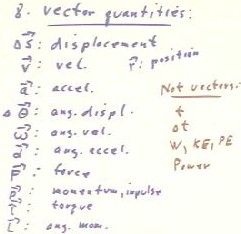 8. vector quantities:
Δs⃗: displacement
v⃗: vel. r⃗: position
a⃗: accel.
Δθ⃗: ang. displ.
ω⃗: ang. vel.
α⃗: ang. accel.
F⃗: force
p⃗: momentum, impulse
τ⃗: torque
L⃗: ang. mom.
Not vectors:
t
Δt
W, KE, PE
Power